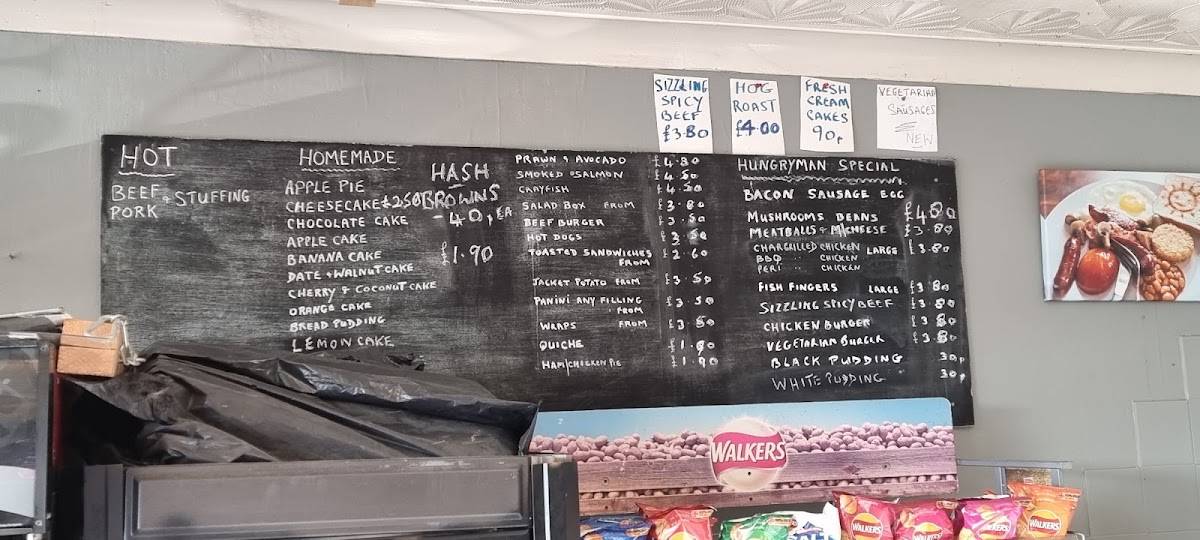 SIZZLING
SPICY
BEEF
£3.80
HOG
ROAST
£4.00
FRESH
CREAM
CAKES
90p
VEGETARIAN
SAUSAGES
NEW
HOT
BEEF & STUFFING
PORK
HOMEMADE
APPLE PIE
CHEESECAKE £2.60
CHOCOLATE CAKE
APPLE CAKE
BANANA CAKE
DATE & WALNUT CAKE
CHERRY & COCONUT CAKE
ORANGE CAKE
BREAD PUDDING
LEMON CAKE
HASH
BROWNS
-40p EA
£1.90
PRAWN & AVOCADO £4.80
SMOKED SALMON £4.50
CRAYFISH £4.50
SALAD BOX FROM £3.80
BEEF BURGER £3.50
HOT DOGS £3.50
TOASTED SANDWICHES £2.60
FROM
JACKET POTATO FROM £3.50
PANINI ANY FILLING £3.50
FROM
WRAPS FROM £3.50
QUICHE £1.90
HAM/CHICKEN PIE £1.90
HUNGRYMAN SPECIAL
BACON SAUSAGE EGG
MUSHROOMS BEANS £4.80
MEATBALLS & M/CHEESE £3.80
CHARGRILLED CHICKEN LARGE £3.80
BBQ " CHICKEN
PERI " CHICKEN
FISH FINGERS LARGE £3.80
SIZZLING SPICY BEEF £3.80
CHICKEN BURGER £3.80
VEGETARIAN BURGER £3.80
BLACK PUDDING 30p
WHITE PUDDING 30p
WALKERS
WALKERS
WALKERS
WALKERS
WALKERS